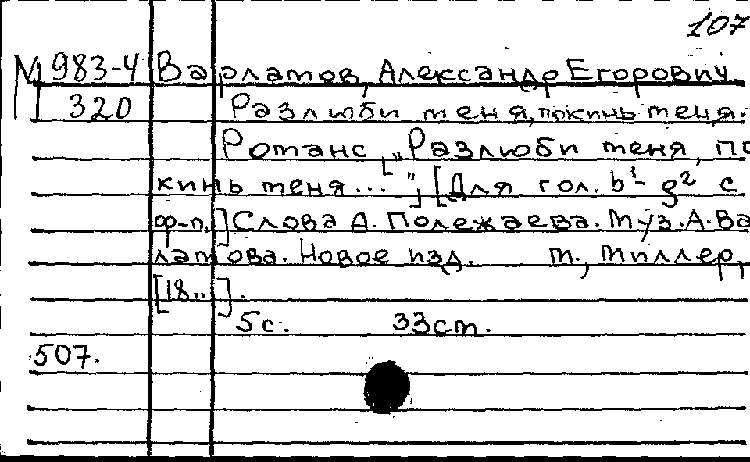 107
М 983-4 Варламов, Александр Егорович.
320 Разлюби меня, покинь меня.
Романс „Разлюби меня, по
кинь меня... ", [Для гол. b¹- g² с
ф-п.] Слова А. Полежаева. Муз. А. Ва
ламова. Новое изд. М., Миллер,
[18..].
5с. 33см.
507.